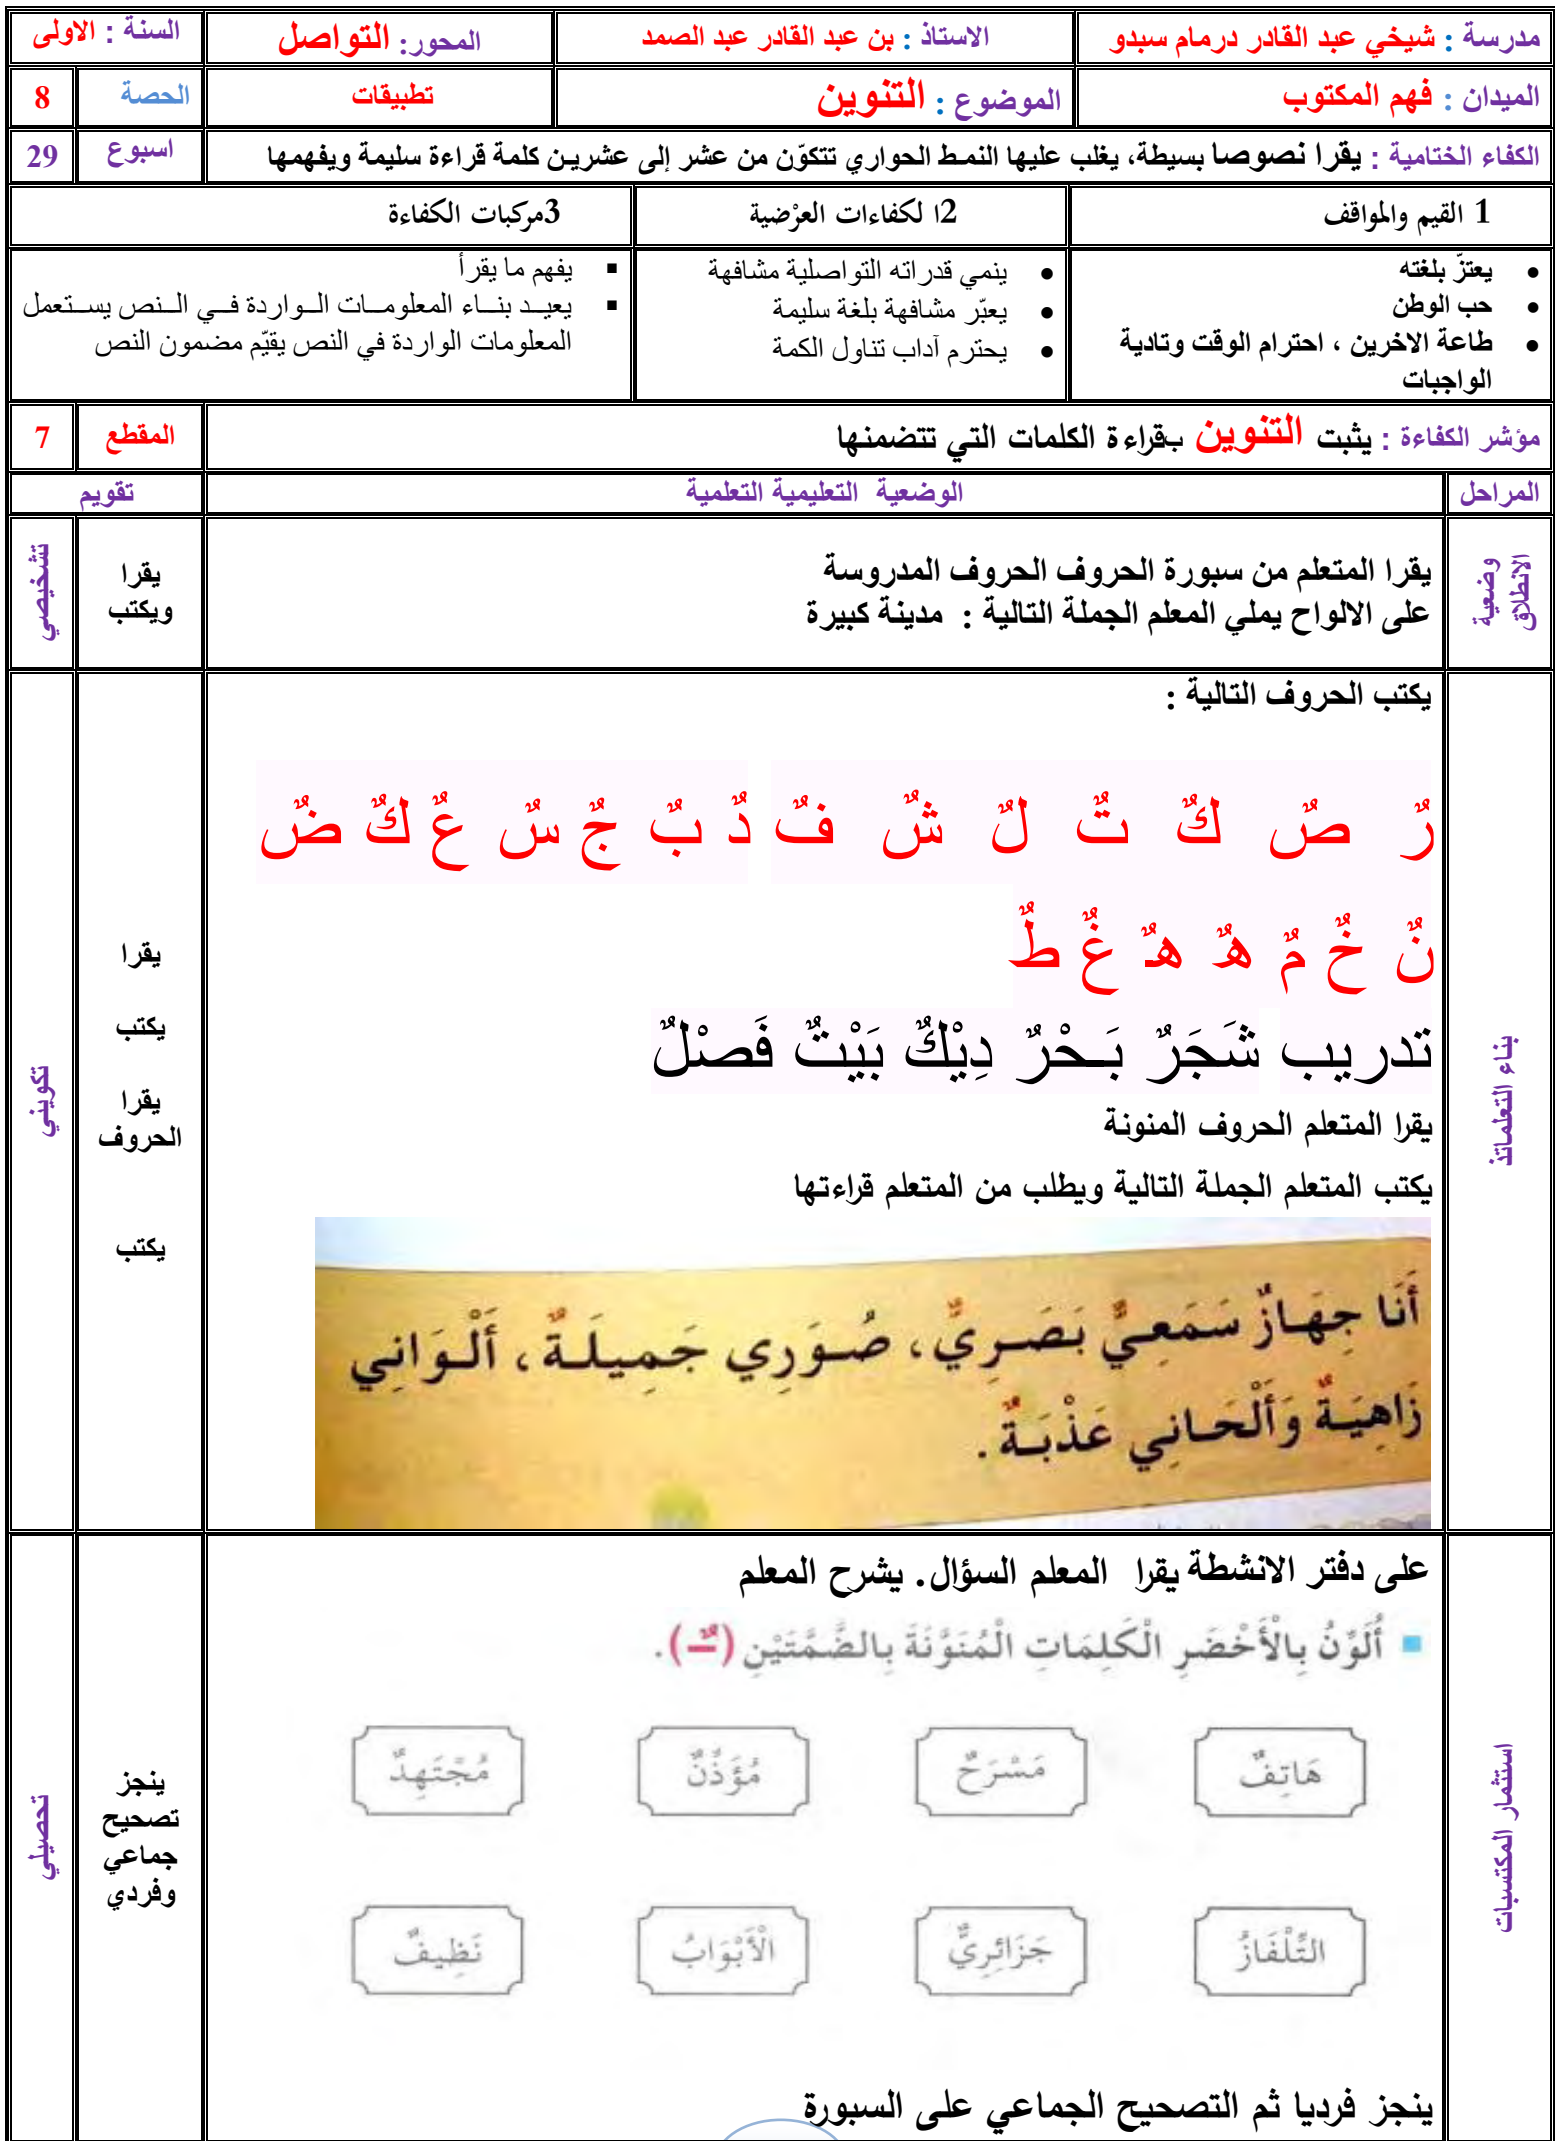 مدرسة : شيخي عبد القادر درمام سبدو
الاستاذ : بن عبد القادر عبد الصمد
المحور: التواصل
السنة : الاولى
الميدان : فهم المكتوب
الموضوع : التنوين
تطبيقات
الحصة
8
الكفاء الختامية : يقرا نصوصا بسيطة، يغلب عليها النمط الحواري تتكوّن من عشر إلى عشرين كلمة قراءة سليمة ويفهمها
اسبوع
29
1 القيم والمواقف
2ا لكفاءات العرْضية
3مركبات الكفاءة
• يعتزّ بلغته
• حب الوطن
• طاعة الاخرين ، احترام الوقت وتادية
الواجبات
• ينمي قدراته التواصلية مشافهة
• يعبّر مشافهة بلغة سليمة
• يحترم آداب تناول الكمة
▪ يفهم ما يقرأ
▪ يعيد بناء المعلومات الواردة في النص يستعمل
المعلومات الواردة في النص يقيّم مضمون النص
مؤشر الكفاءة : يثبت التنوين بقراءة الكلمات التي تتضمنها
المقطع
7
المراحل
الوضعية التعليمية التعلمية
تقويم
وضعية
الانطلاق
يقرا المتعلم من سبورة الحروف الحروف المدروسة
على الالواح يملي المعلم الجملة التالية : مدينة كبيرة
يقرا
ويكتب
تشخيصي
بناء التعلماتذ
يكتب الحروف التالية :
رٌ صٌ كٌ تٌ لٌ شٌ فٌ دٌ بٌ جٌ سٌ عٌ كٌ ضٌ
نٌ خٌ مٌ هٌ هـٌ غٌ طٌ
تدريب شَجَرٌ بَـحْرٌ دِيْكٌ بَيْتٌ فَصْلٌ
يقرا المتعلم الحروف المنونة
يكتب المتعلم الجملة التالية ويطلب من المتعلم قراءتها
أَنَا جِهَازٌ سَمَعِيٌّ بَصَرِيٌّ، صُوَرِي جَمِيلَةٌ، أَلْوَانِي
زَاهِيَةٌ وَأَلْحَانِي عَذْبَةٌ.
يقرا
يكتب
يقرا
الحروف
يكتب
تكويني
استثمار المكتسبات
على دفتر الانشطة يقرا المعلم السؤال. يشرح المعلم
▪ أُلَوِّنُ بِالْأَخْضَرِ الْكَلِمَاتِ الْمُنَوَّنَةَ بِالضَّمَّتَيْنِ (ـٌ).
هَاتِفٌ
مَسْرَحٌ
مُؤَذِّنٌ
مُجْتَهِدٌ
التِّلْفَازُ
جَزَائِرِيٌّ
الْأَبْوَابُ
نَظِيفٌ
ينجز فرديا ثم التصحيح الجماعي على السبورة
ينجز
تصحيح
جماعي
وفردي
تحصيلي